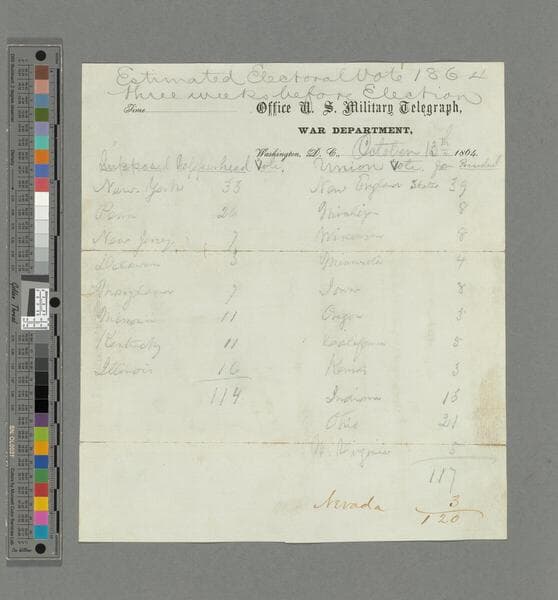 Estimated Electoral Vote 1864
three weeks before Election
Time
Office U. S. Military Telegraph,
WAR DEPARTMENT,
Washington, D. C., October 13th 1864.
Supposed Copperhead Vote.
Union Vote, for President
New York 33
Penn 26
New Jersey 7
Delaware 3
Maryland 7
Missouri 11
Kentucky 11
Illinois 16
114
New England States 39
Michigan 8
Wisconsin 8
Minnesota 4
Iowa 8
Oregon 3
California 5
Kansas 3
Indiana 13
Ohio 21
W. Virginia 5
117
Nevada 3
120